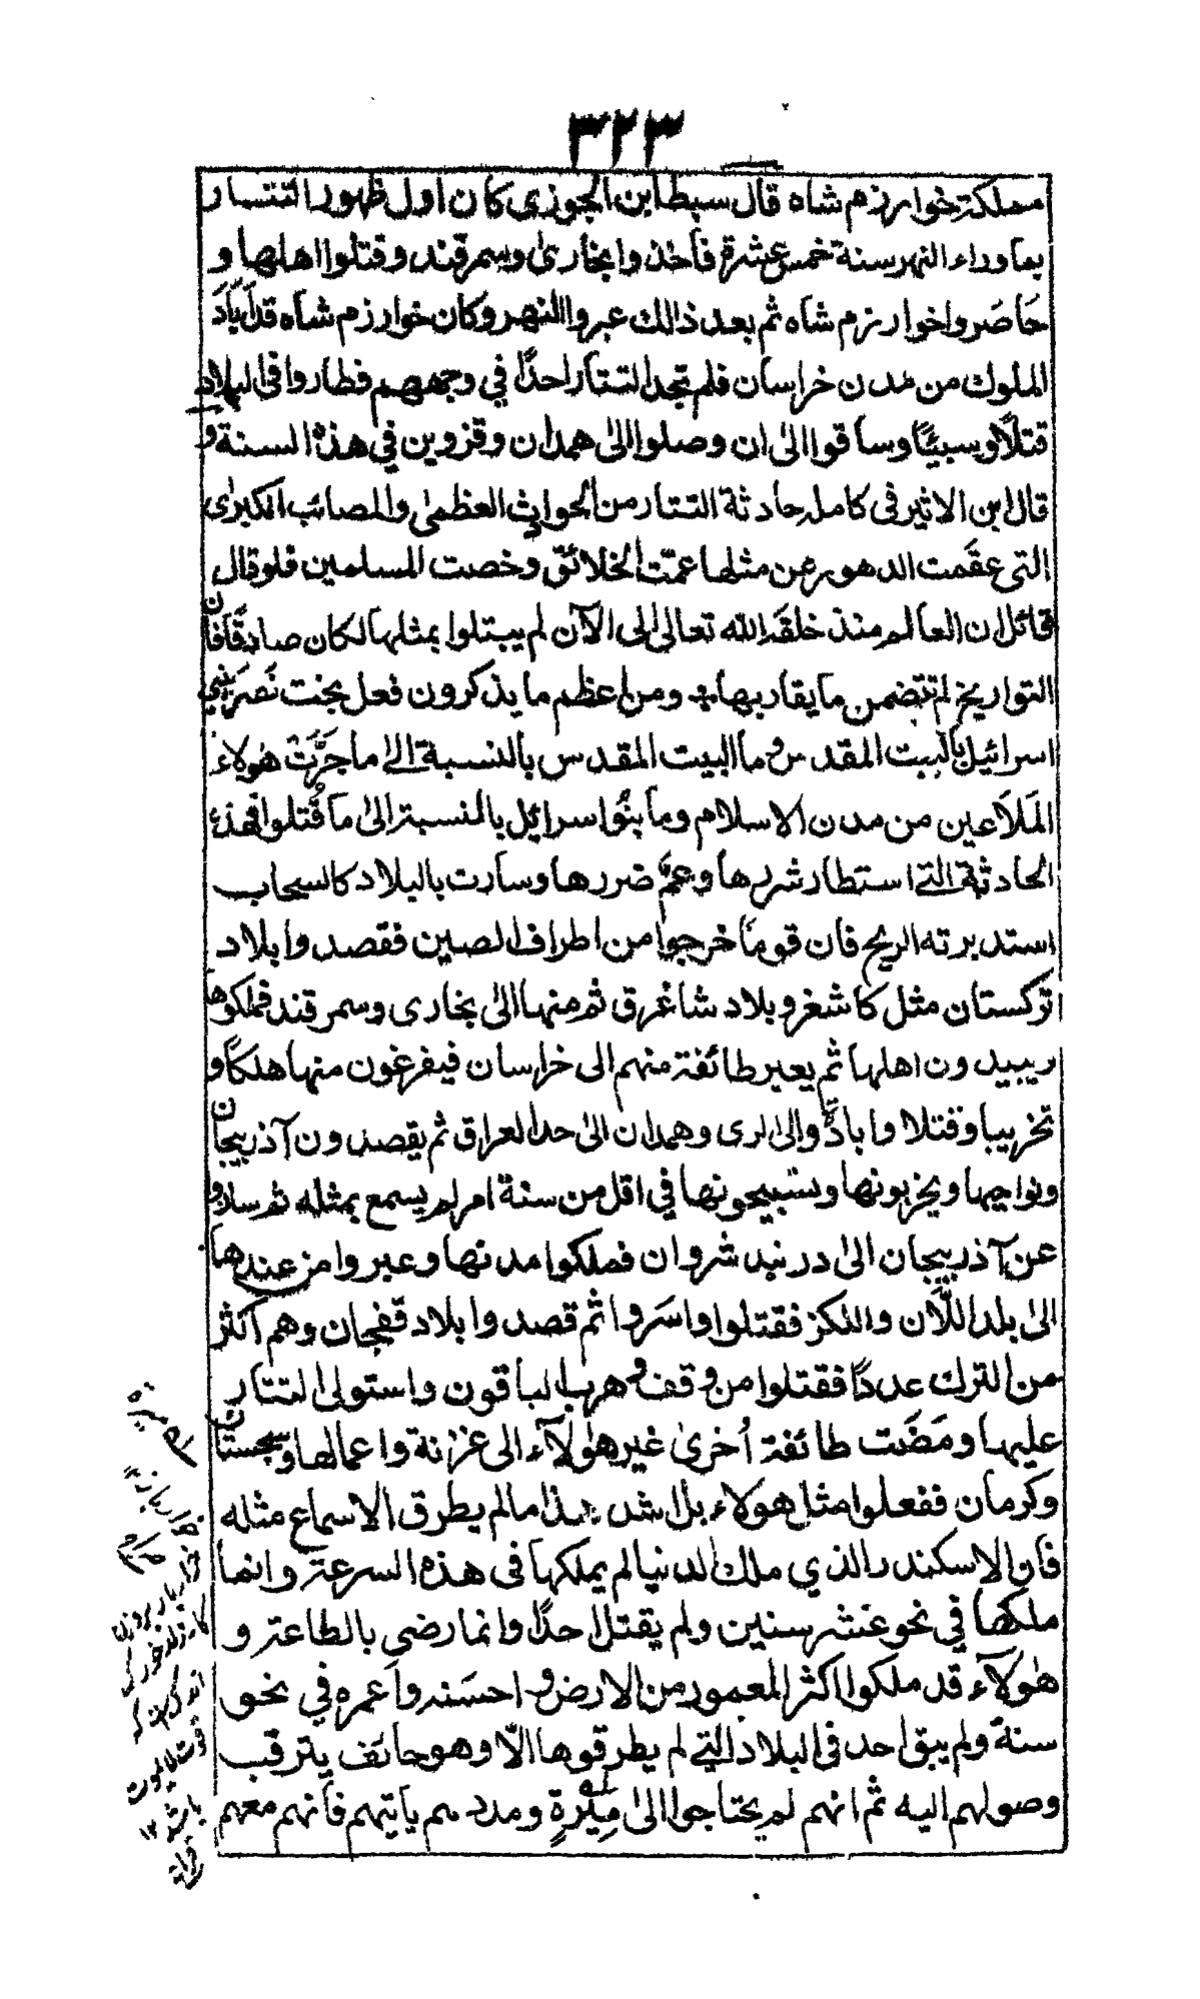 ٣٢٣
مملكة خوارزم شاه قال سبط ابن الجوزي كان اول ظهور التتار
بماوراء النهر سنة خمس عشرة فاخذوا بخارىٰ وسمرقند وقتلوا اهلها و
حَاصَروا خوارزم شاه ثم بعد ذالك عبروا النهر وكان خوارزم شاه قد اَبَادَ
الملوك من مدن خراسان فلم تجد التتار احدًا في وجههم فطاروا في البلاد
قتلًا وسبيًا وساقوا الىٰ ان وصلوا الىٰ همدان وقزوين في هذه السنة و
قال ابن الاثير في كامله حادثة التتار من الحوادث العظمىٰ والمصائب الكبرىٰ
التي عقَمت الدهور عن مثلها عمّت الخلائق وخصت المسلمين فلو قال
قائل ان العالم منذ خلقَه الله تعالىٰ الى الآن لم يبتلوا بمثلها لكان صادقًا فان
التواريخ لم تتضمن ما يقاربها ومن اعظم ما يذكرون فعل بخت نَصَر ببني
اسرائيل بالبيت المقدس وما البيت المقدس بالنسبة الىٰ ما خَرَّبَت هٰولاء
المَلَاعين من مدن الاسلام وما بنُوا اسرائيل بالنسبة الىٰ ما قُتلوا فهذه
الحادثة التي استطار شررها وعمَّ ضررها وسارت بالبلاد كالسحاب
استدبرته الريح فان قومًا خرجوا من اطراف الصين فقصدوا بلاد
تركستان مثل كاشغر وبلاد شاغرق ثم منها الىٰ بخارى وسمرقند فملكوها
يبيدون اهلها ثم يعبر طائفة منهم الى خراسان فيفرغون منها هلكًا و
تخريبا وقتلا وابادةً والىٰ الرى وهمدان الىٰ حد العراق ثم يقصدون آذربيجان
ونواحيها ويخربونها ويستبيحونها في اقل من سنة امر لم يسمع بمثله ثم ساروا
عن آذربيجان الىٰ دربند شروان فملكوا مدنها وعبروا من عندها
الىٰ بلد اللّان واللكز فقتلوا واسَروا ثم قصدوا بلاد قفجان وهم اكثر
من الترك عددًا فقتلوا من وقف وهرب الباقون واستولى التتار
عليها ومَضَت طائفة اُخرىٰ غير هٰولآء الى غزنة واعمالها وسجستان
وكرمان ففعلوا مثل هولاء بل اشد هذا مالم يطرق الاسماع مثله
فان الاسكندر الذي ملك الدنيا لم يملكها في هذه السرعة وانما
ملكها في نحو عشر سنين ولم يقتل احدًا وانما رضي بالطاعة و
هٰولآء قد ملكوا اكثر المعمور من الارض واحسَنه واَعمره في نحو
سنة ولم يبق احد في البلاد التي لم يطرقوها الّا وهو خائف يترقب
وصولهم اليه ثم انهم لم يحتاجوا الىٰ مِيْرةٍ ومددهم ياتيهم فانهم معهم